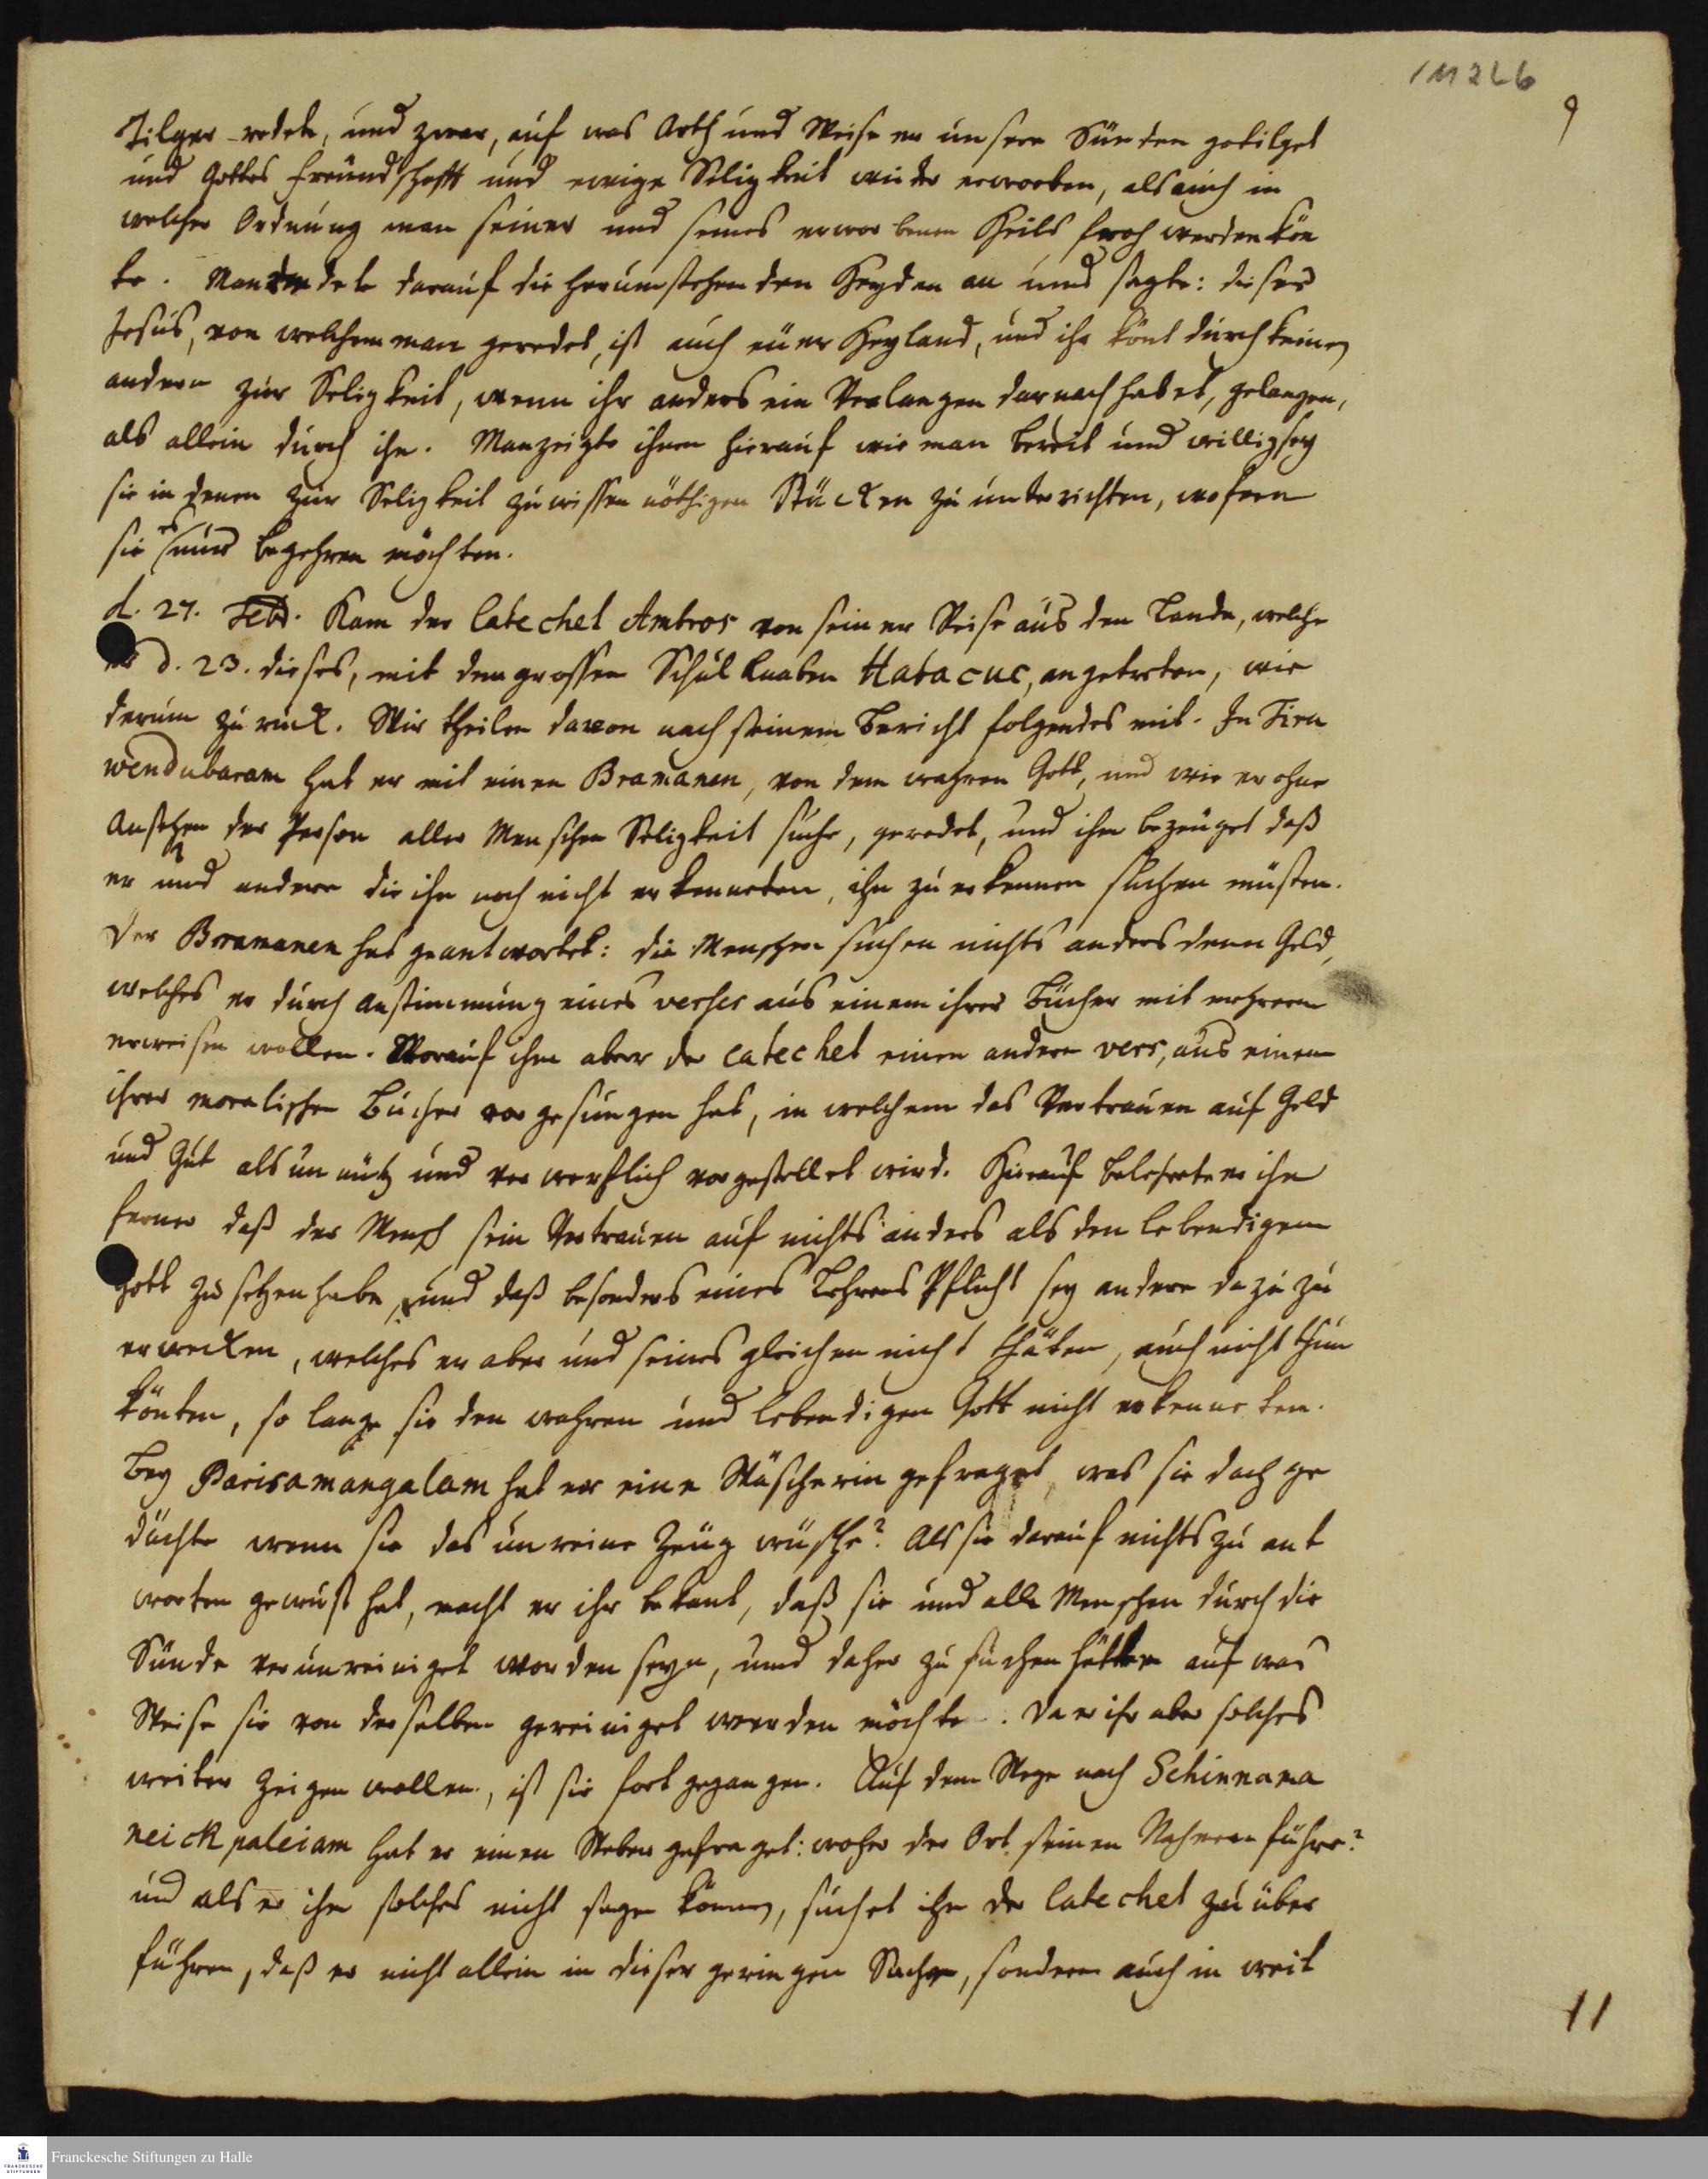 1 II 2 L 6
9
Tilger redete, und zwar, auf was Arth und Weise er unsere Sünden getilget
und Gottes Freundschafft und ewige Seligkeit wieder erworben, als auch in
welcher Ordnung man seiner und seines erworbenen Heils froh werden kön
te. Man redete darauf die herumstehenden Heyden an und sagte: dieser
Jesus, von welchem man geredet, ist auch euer Heyland, und ihr könt durch keinen
andern zur Seligkeit, wenn ihr anders ein Verlangen darnach habet, gelangen,
als allein durch ihn. Man zeigte ihnen hierauf wie man bereit und willig sey
sie in denen zur Seligkeit zu wissen nöthigen Stücken zu unterrichten, wofern
sie es nur begehren möchten.
d. 27. Febr. Kam der Catechet Ambros von seiner Reise aus den Lande, welche
er d. 23. dieses, mit dem grossen Schul Knaben Habacuc, angetreten, wie
derum zurück. Wir theilen davon nach seinem Bericht folgendes mit. In Tiru
wendubaram hat er mit einen Bramanen, von dem wahren Gott, und wie er ohne
Ansehen der Person aller Menschen Seligkeit suche, geredet, und ihm bezeuget daß
er und andere die ihn noch nicht erkenneten, ihn zu erkennen suchen müsten.
Der Bramanen hat geantwortet: die Menschen suchen nichts anders denn Geld,
welches er durch Anstimmung eines verses aus einem ihrer Bücher mit mehrern
erweisen wollen. Worauf ihm aber der Catechet einen andern vers, aus einem
ihrer moralischen Bücher vorgesungen hat, in welchem das Vertrauen auf Geld
und Gut als unnütz und verwerflich vorgestellet wird. Hierauf belehrete er ihn
ferner daß der Mensch sein Vertrauen auf nichts anders als den lebendigen
Gott zu setzen habe, und daß besonders eines Lehrers Pflicht sey andere dazu zu
erwecken, welches er aber und seines gleichen nicht thäten, auch nicht thun
könten, so lange sie den wahren und lebendigen Gott nicht erkenneten.
Bey Parisamangalam hat er eine Wäscherin gefraget, was sie doch ge
dächte wenn sie das unreine Zeug wüsche? Als sie darauf nichts zu ant
worten gewust hat, macht er ihr bekant, daß sie und alle Menschen durch die
Sünde verunreiniget worden seyn, und daher zu suchen hätten auf was
Weise sie von derselben gereiniget werden möchten. Da er ihr aber solches
weiter zeigen wollen, ist sie fort gegangen. Auf dem Wege nach Schinnama
neickpaleiam hat er einen Weber gefraget: woher der Ort seinen Nahmen führe?
und als er ihm solches nicht sagen können, suchet ihn der Catechet zu über
führen, daß er nicht allein in dieser geringen Sache, sondern auch in weit
11
Franckesche Stiftungen zu Halle